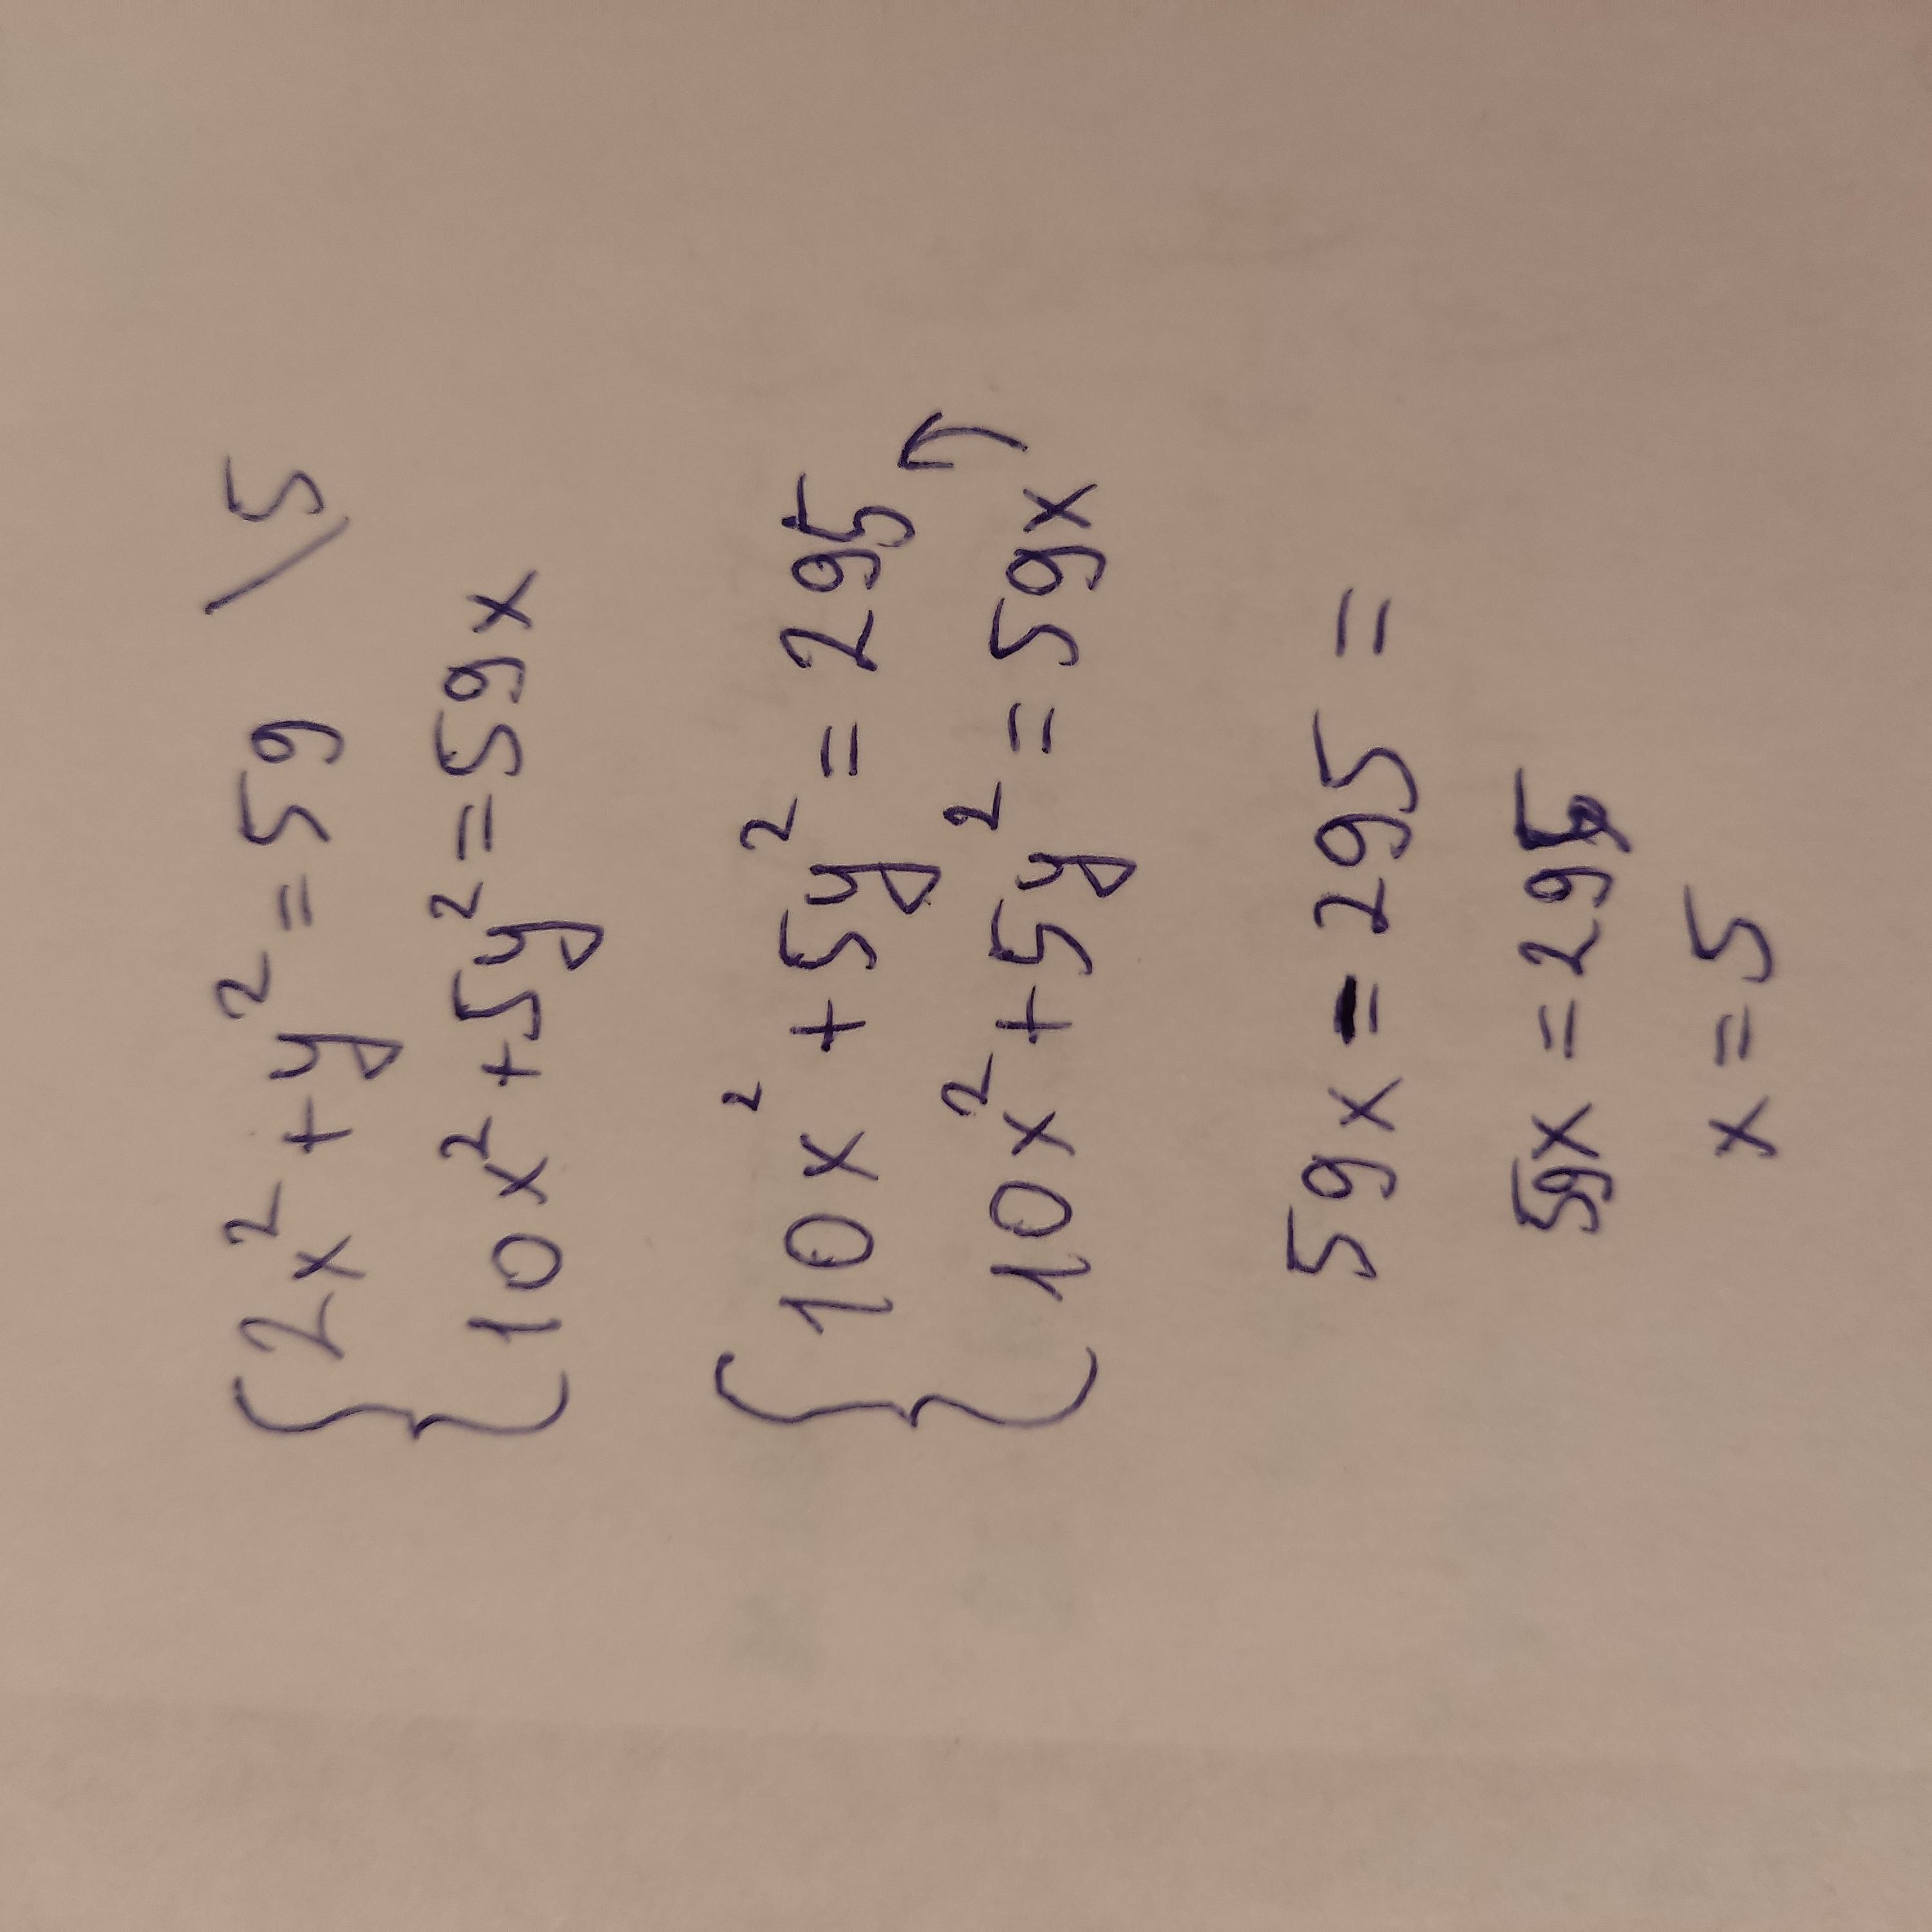 2x² + y² = 59 / 5
10x² + 5y² = 59x
10x² + 5y² = 295
10x² + 5y² = 59x
59x = 295 =
59x = 295
x = 5